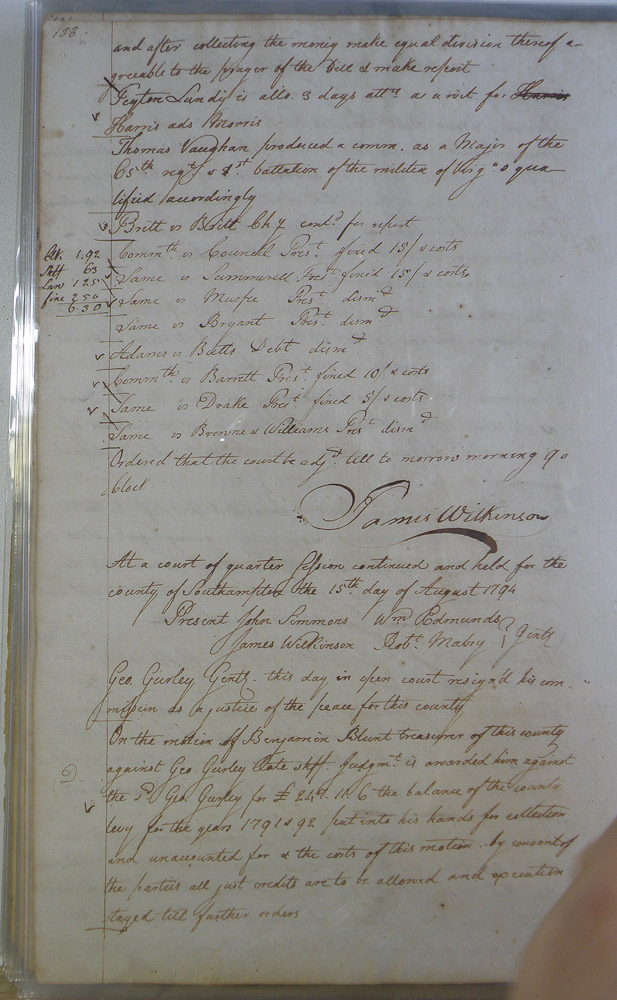 188.
and after collecting the money make equal division thereof a-
greeable to the prayer of the Bill & make report
Peyton Lundy is allo. 3 days attd as a wit for Harris
Harris ads Morris
Thomas Vaughan produced a comn. as a Major of the
65th regt & 1st battalion of the militia of Virga & qua
lified accordingly
Britt vs Britt Chy contd for report
Commth vs Council Prest fined 15/ & costs
Same vs Summerell Prest fined 15/ & costs
Same vs Prest dismd
Same vs Bryant Prest dismd
Adams vs Butts Debt dismd
Commth vs Barrett Prest fined 10/ & costs
Same vs Drake Prest fined 5/ & costs
Same vs Browne & Williams Prest dismd
Clk. 1.92
Shff 63
Law 1 25
fine 2.50
6.30
Ordered that the court be adjd till to morrow morning 9 o
Clock
James Wilkinson
At a court of quarter session continued and held for the
county of Southampton the 15th day of August 1794
Present John Simmons Wm Edmunds
James Wilkinson Robt Mabry } Gentn
Geo. Gurley Gentn. this day in open court resign'd his com-
mission as a justice of the peace for this county
On the motion of Benjamin Blunt treasurer of this county
against Geo. Gurley late shff Judgmt is awarded him against
D.
the Sd Geo. Gurley for £ 6 the balance of the county
levy for the years 1791 & 92 put into his hands for collection
and unaccounted for & the costs of this motion .. by consent of
the parties all just credits are to be allowed and execution
stayed till further orders